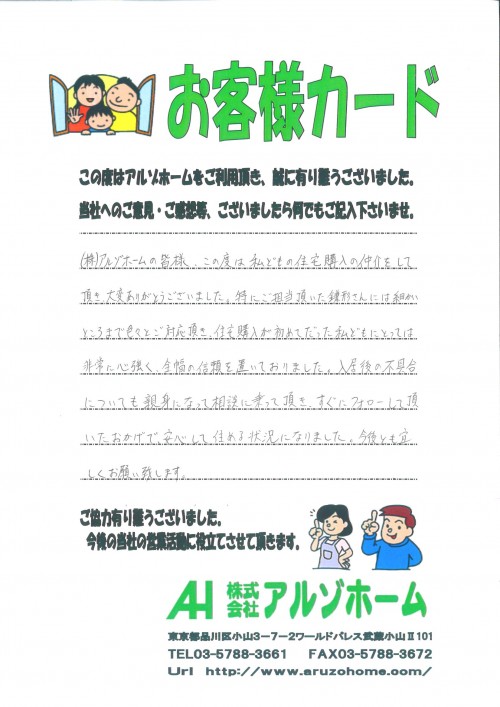 お客様カード
この度はアルゾホームをご利用頂き、誠に有り難うございました。
当社へのご意見・ご感想等、ございましたら何でもご記入下さいませ。
(株)アルゾホームの皆様、この度は私どもの住宅購入の仲介をして
頂き、大変ありがとうございました。特にご担当頂いた鏡形さんには細かい
ところまで色々とご対応頂き、住宅購入が初めてだった私どもにとっては
非常に心強く、全幅の信頼を置いておりました。入居後の不具合
についても親身になって相談に乗って頂き、すぐにフォローして頂
いたおかげで安心して住める状況になりました。今後とも宜
しくお願い致します。
ご協力有り難うございました。
今後の当社の営業活動に役立てさせて頂きます。
AH 株式会社 アルゾホーム
東京都品川区小山3-7-2ワールドパレス武蔵小山Ⅱ101
TEL03-5788-3661 FAX03-5788-3672
Url http://www.aruzohome.com/